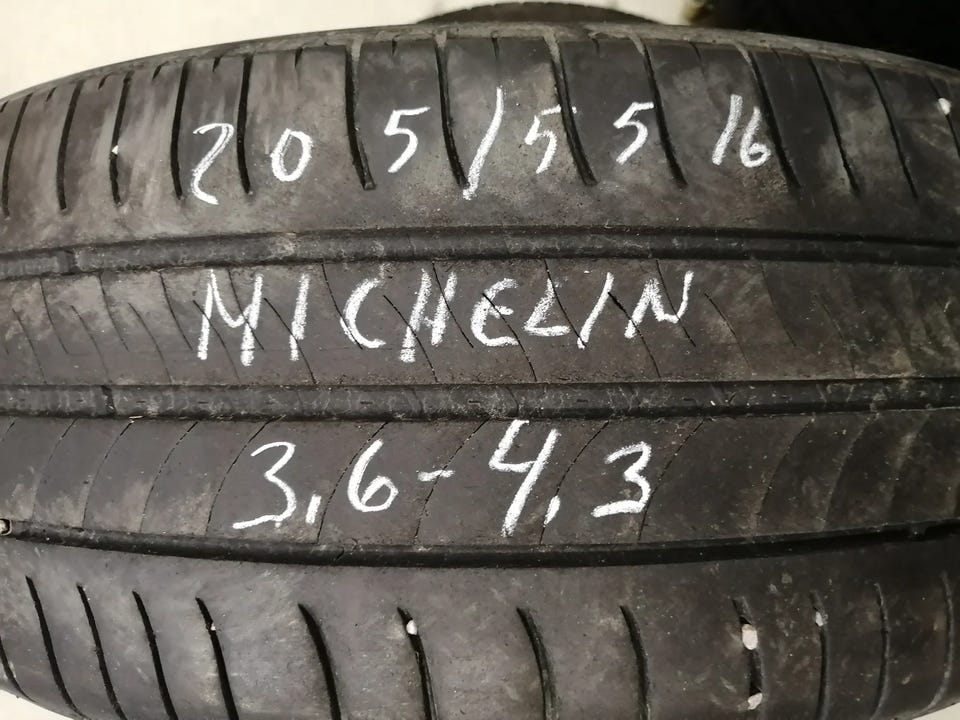 205/55 16
MICHELIN
3,6-4,3